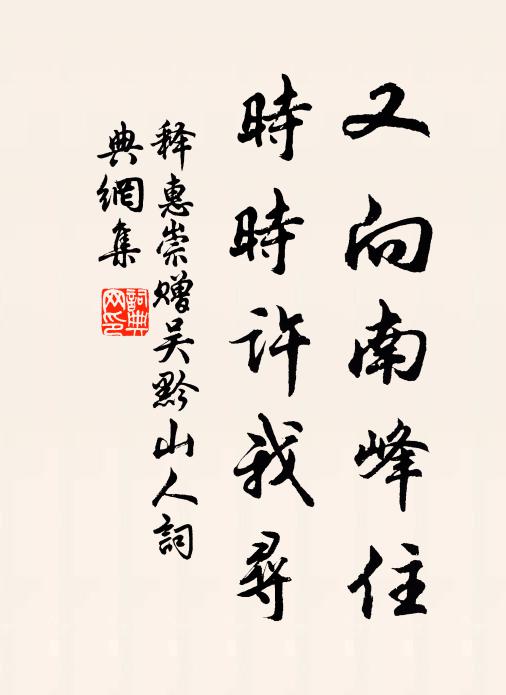 又向南峰住
時時許我尋
释惠崇赠吴黔山人詞
典網集
詞典
网印